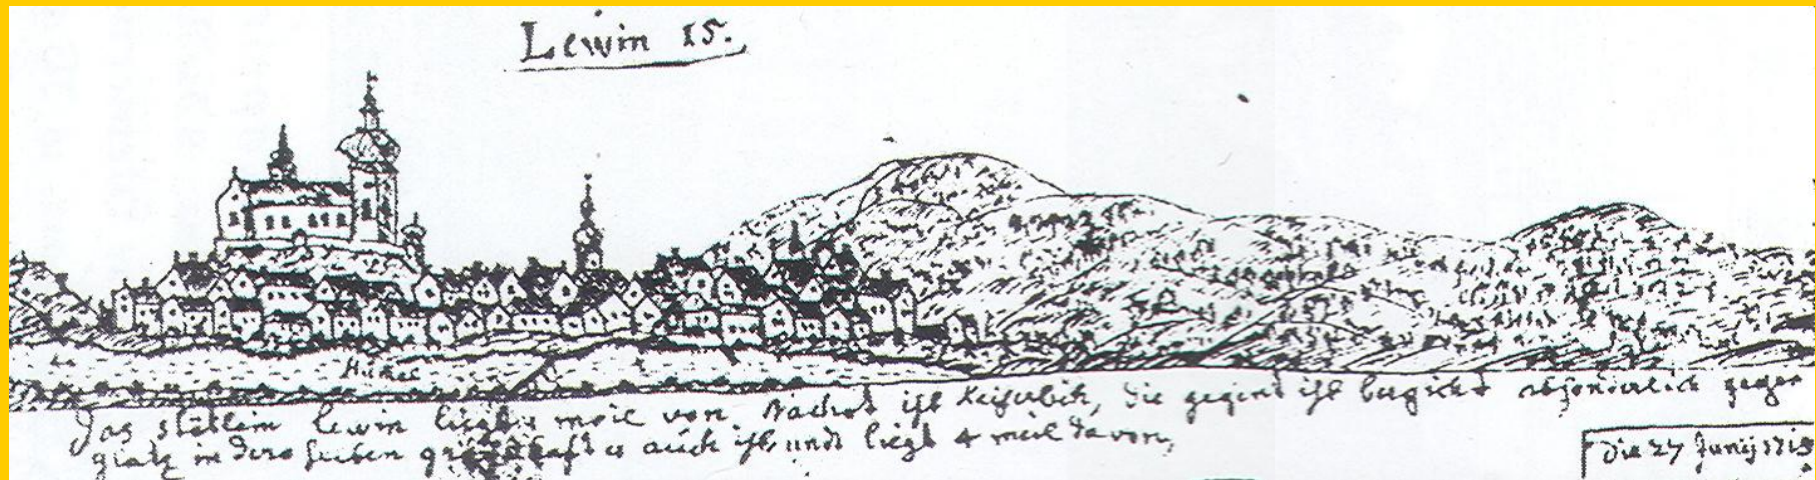 Lewin 15.
Das stätlein lewin liegt meil von Nachot ist Keiserlich, die gegent ist bergicht absonderlich gegen
glatz in dero selben graffschaft es auch ist und liegt 4 meil davon,
die 27 Junij